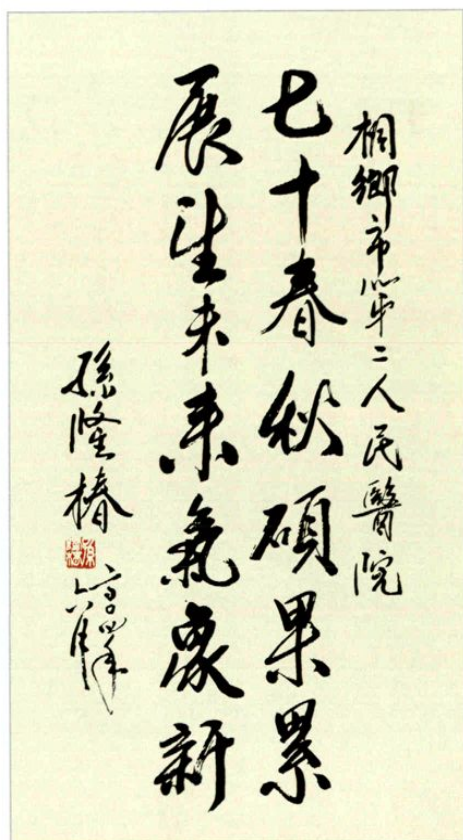 桐鄉市第二人民醫院
七十春秋碩果累
展望未来氣象新
孫隆椿
六月